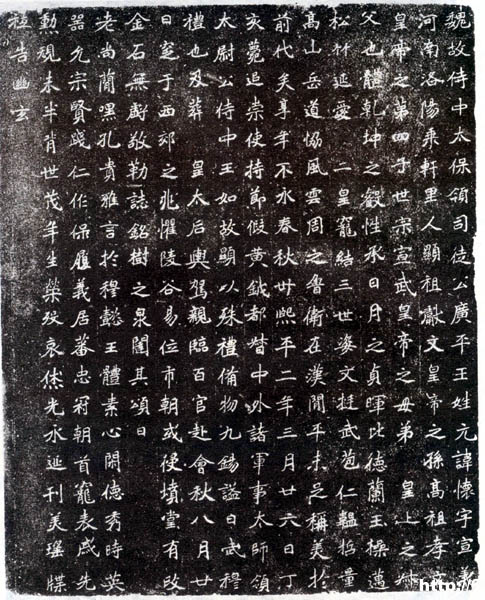 魏故侍中太保領司徒公廣平王姓元諱懷字宣義
河南洛陽乘軒里人顯祖獻文皇帝之孫高祖孝文
皇帝之第四子世宗宣武皇帝之母弟 皇上之叔
父也體乾坤之叡性承日月之貞暉比德蘭玉操邁
松竹延愛 二皇寵結三世姿文挺武苞仁韞哲量
高山岳道協風雲周之魯衛在漢間平未足稱美於
前代矣享年不永春秋卅熙平二年三月廿六日丁
亥薨追崇使持節假黃鉞都督中外諸軍事太師領
太尉公侍中王如故顯以殊禮備物九錫謚曰武穆
禮也及葬 皇太后輿駕親臨百官赴會秋八月廿
日窆于西郊之兆懼陵谷易位市朝或侵墳堂有改
金石無虧敬勒誌銘樹之泉闥其頌曰
老尚簡嘿孔貴雅言於穆懿王體素心閑德秀時英
器允宗賢踐仁作保履義居蕃忠冠朝首寵表戚先
勳規未半背世茂年生榮歿哀休光永延刊美瑤牒
祇告幽玄
http://